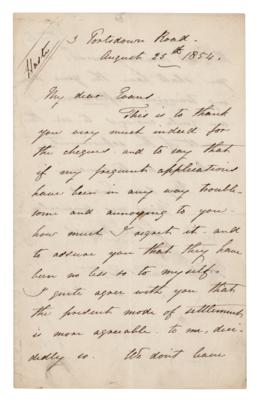 3 Portsdown Road.
August 25th 1854.
Haste
My dear Evans
This is to thank
you very much indeed for
the cheques and to say that
if my frequent applications
have been in any way trouble-
some and annoying to you
how much I regret it and
to assure you that they have
been no less so to myself.
I quite agree with you that
the present mode of settlement
is more agreeable to me, deci-
dedly so. We don't leave